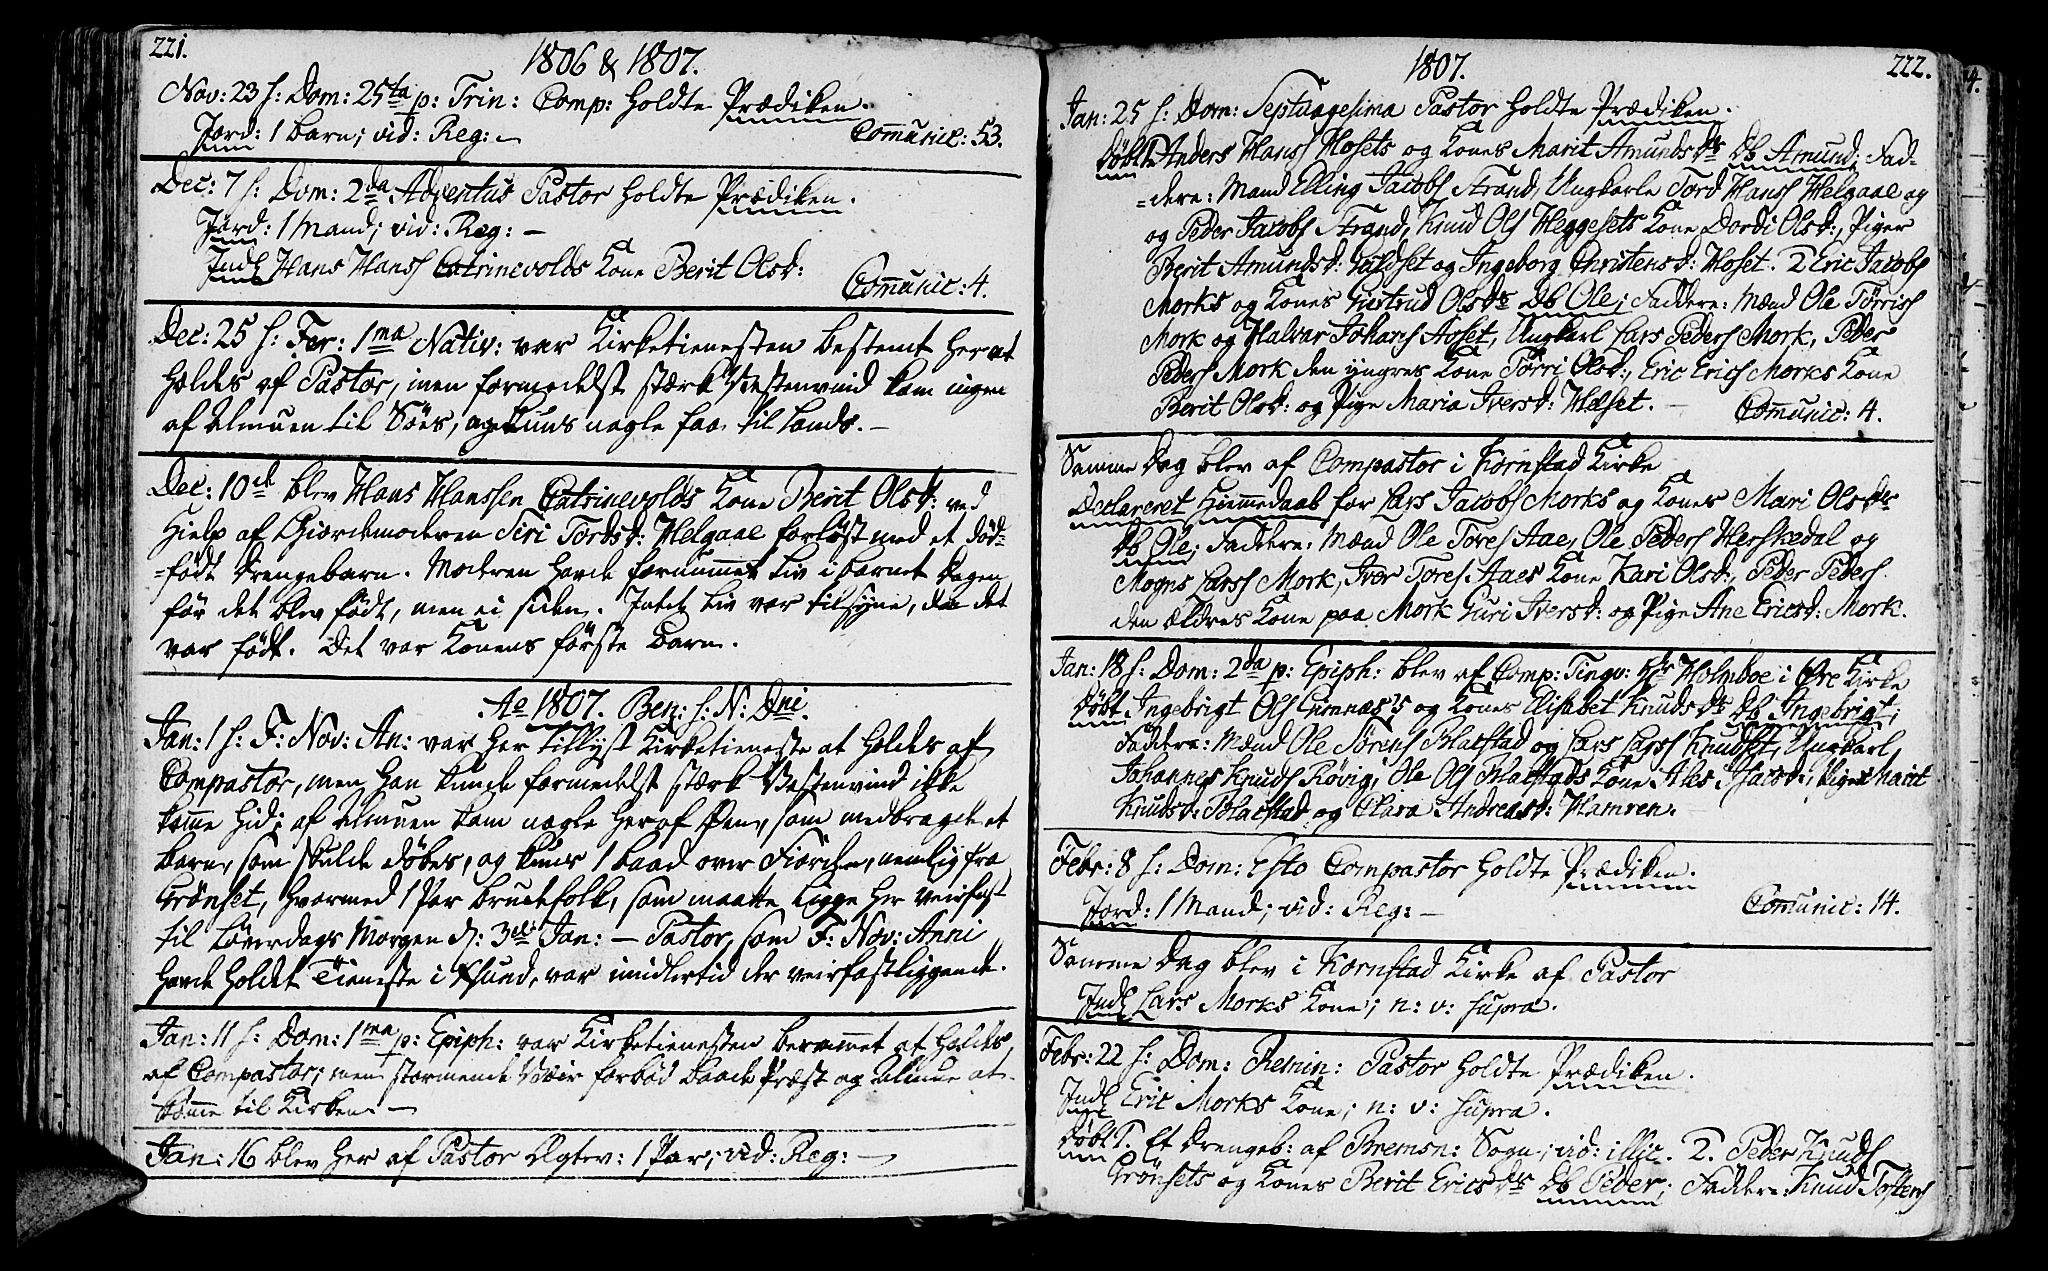 221.
1806 & 1807.
Nov: 23 s: Dom: 25ta p: Trin: Comp: holdte Prædiken.
Jord: 1 barn; vid: Reg: -
Communic: 53.
Dec: 7 s: Dom: 2da Adventus Pastor holdte Prædiken.
Jord: 1 Mand; vid: Reg: -
Indl Hans Hanss Catrinevolds Kone Berit Olsd:
Communic: 4.
Dec: 25 s: Fer: 1ma Nativ: var Kirketienesten bestemt her at
holdes af Pastor, men formedelst stærk Vestenvind kom ingen
af Almuen til Söes, og kuns nogle faa til Lands. -
Dec: 10de blev Hans Hanssen Catrinevolds Kone Berit Olsd: ved
Hielp af Giordemoderen Siri Tordsd: Helgaae forlöst med et död-
=födt Drengebarn. Moderen havde fornummet Liv i barnet dagen
för det blev födt, men ei siden. Intet Liv var tilsyne, da det
var födt. Det var Konens förste barn.
Ao 1807. Ben: s: N: Dni.
Jan: 1 s: F: Nov: An: var her tillyst Kirketieneste at holdes af
Compastor, men han kunde formedelst stærk Vestenvind ikke
komme hid; af Almuen kom nogle her af Øen, som medbragde et
barn, som skulde döbes, og kuns 1 baad over Fiorden, nemlig fra
Grönset, hvormed 1 Par brudefolk, som maatte ligge her veirfast
til Löverdags Morgen d: 3die Jan: - Pastor, som F: Nov: Anni
havde holdet Tieneste i Xsund, var imidlertid der veirfastliggende.
Jan: 11 s: Dom: 1ma p: Epiph: var Kirketienesten berammet at holdes
af Compastor; men stormende Væir forbød baade Præst og Almue at
komme til Kirken. -
Jan: 16 blev her af Pastor Ægtev: 1 Par; vid: Reg: -
222.
1807.
Jan: 25 s: Dom: Septuagesima Pastor holdte Prædiken.
Döbt 1. Anders Hanss Hosets og Kones Marit Amundsdr Db Amund; Fad-
=dere: Mand Elling Jacobs Strand, Ungkarle Tord Hanss Helgaae og
og Peder Jacobs Strand, Knud Ols Heggesets Kone Dordi Olsd:, Piger
Berit Amundsd: Guldset og Ingeborg Christensd: Hoset. 2 Eric Jacobs
Morks og Kones Giertrud Olsdr Db Ole; Faddere: Mænd Ole Törriss
Mork og Halvar Johans Aoset, Ungkarl Lars Peders Mork, Peder
Peders Mork den yngres Kone Törri Olsd:, Eric Erics Morks Kone
Berit Olsd: og Pige Maria Iversd: Helset. -
Communic: 4.
Samme Dag blev af Compastor i Kornstad Kirke
Declareret Hiemmedaab for Lars Jacobs Morks og Kones Mari Olsdr
Db Ole; Faddere: Mænd Ole Tores Aae, Ole Peders Herskedal og
Mogns Larss Mork, Iver Tores Aaes Kone Kari Olsd:, Peder Peders
den ældres Kone paa Mork Guri Iversd: og Pige Ane Ericsd: Mork.
Jan: 18 s: Dom: 2da p: Epiph: blev af Comp: Tingv: Hr Holmboe i Øre Kirke
Döbt Ingebrigt Ols Gimnæs's og Kones Elisabet Knudsdr Db Ingebrigt;
Faddere: Mænd Ole Sörens Blakstad og Lars Larss Knudset, Ungkarl,
Johannes Knuds Rövig, Ole Ols Blakstads Kone Ales Jacobd:, Piger Marit
Knudsd: Blakstad og Clara Andreasd: Hamren.
Febr: 8 s: Dom: Esto Compastor holdte Prædiken.
Jord: 1 Mand; vid: Reg: -
Comunic: 14.
Samme Dag blev i Kornstad Kirke af Pastor
Indl Lars Morks Kone; n: v: supra.
Febr: 22 s: Dom: Remin: Pastor holdte Prædiken.
Indl Eric Morks Kone; n: v: supra.
Döbt 1. Et Drengeb: af Bremsn: Sogn; vid: illic. 2. Peder Knuds
Grönsets og Kones Berit Ericsdr Db Peder; Faddere: Knud Tostens
4.